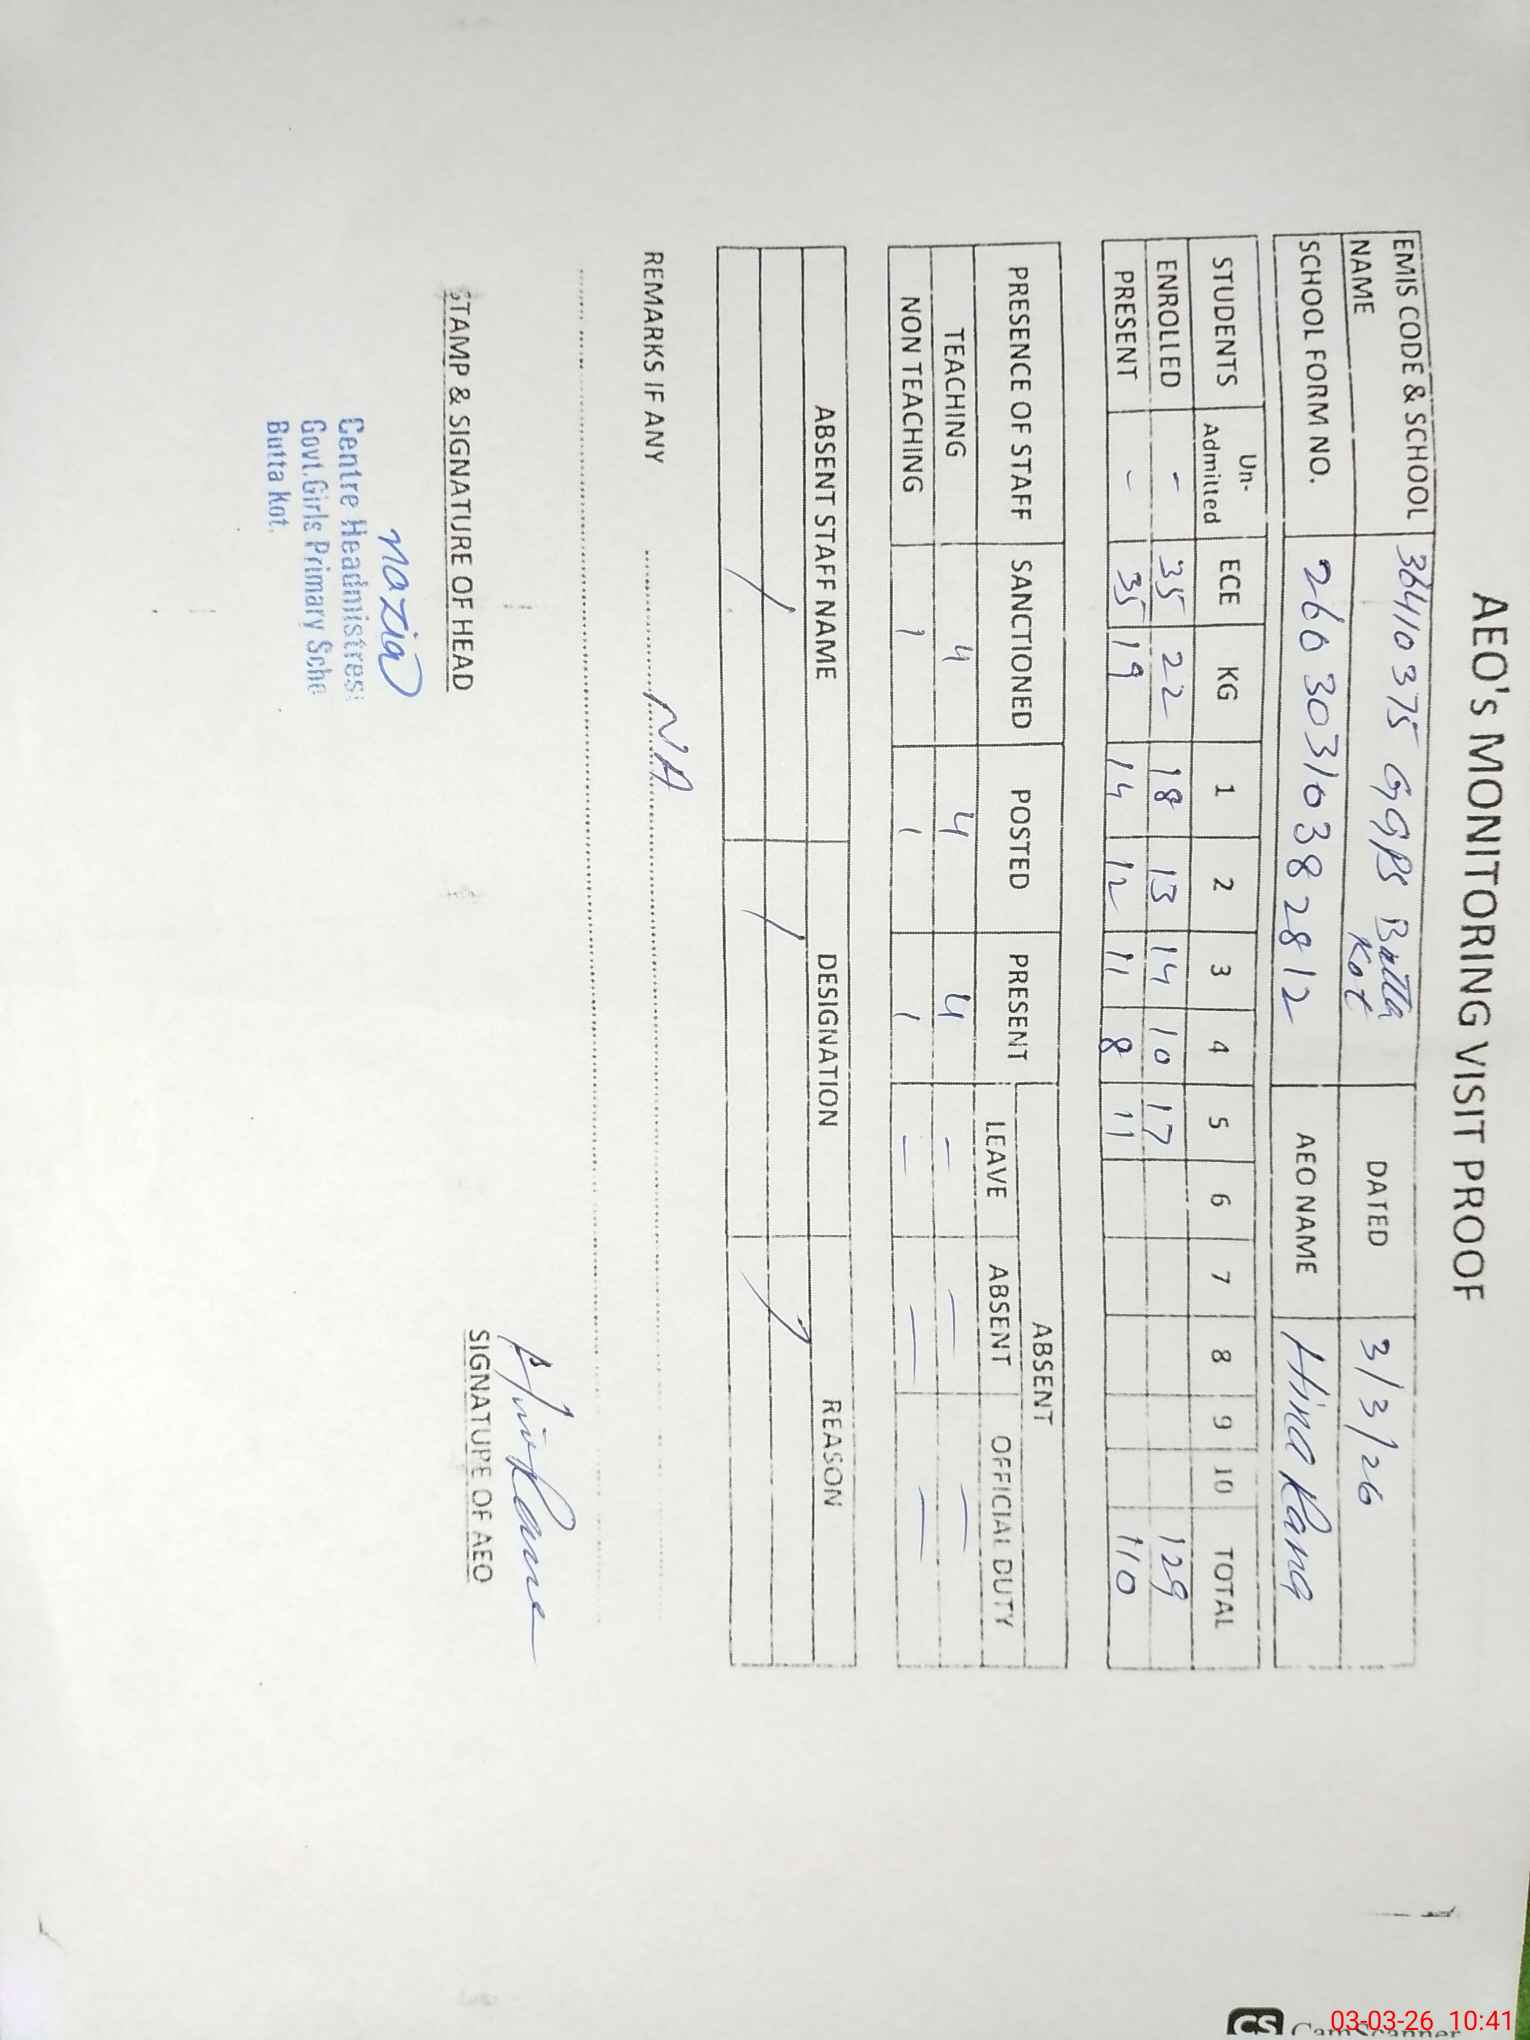 AEO's MONITORING VISIT PROOF
EMIS CODE & SCHOOL NAME 36410375 GGPS Butta Kot DATED 3/3/26
SCHOOL FORM NO. 26030310382812 AEO NAME Hina Rana
STUDENTS Un-Admitted ECE KG 1 2 3 4 5 6 7 8 9 10 TOTAL
ENROLLED - 35 22 18 13 14 10 17 129
PRESENT - 35 19 14 12 11 8 11 110
PRESENCE OF STAFF SANCTIONED POSTED PRESENT ABSENT
LEAVE ABSENT OFFICIAL DUTY
TEACHING 4 4 4 - - -
NON TEACHING 1 1 1 - - -
ABSENT STAFF NAME DESIGNATION REASON
REMARKS IF ANY NA
Nazia
STAMP & SIGNATURE OF HEAD
Hina Rana
SIGNATURE OF AEO
Centre Headmistres
Govt.Girls Primary Scho
Butta Kot.
CS CamScanner
03-03-26 10:41